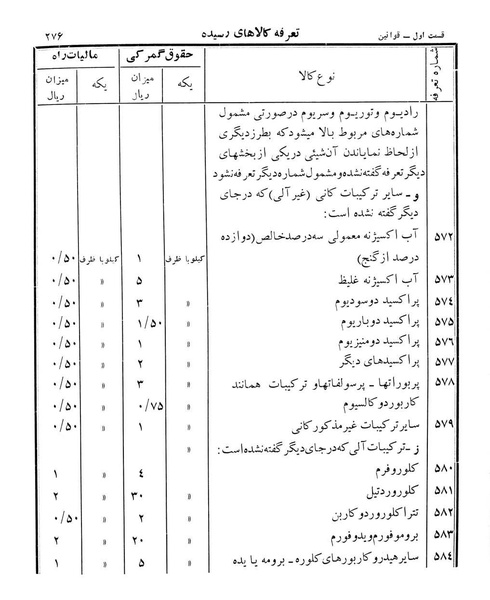 قسمت اول ــ قوانین تعرفه کالاهای رسیده ۲۷۶
شماره تعرفه نوع کالا حقوق گمرکی مالیات راه
یکه میزان ریال یکه میزان ریال
رادیوم وتوریوم وسریوم درصورتی مشمول
شماره‌های مربوط بالا میشود که بطرز دیگری
از لحاظ نمایاندن آن‌شیئی در یکی از بخشهای
دیگر تعرفه گفته نشده و مشمول شماره دیگر تعرفه نشود
و ــ سایر ترکیبات کانی (غیرآلی) که درجای
دیگر گفته نشده است:
۵۷۲ آب اکسیژنه معمولی سه درصد خالص (دوازده
درصد از گنج) کیلو با ظرف ۱ کیلو با ظرف ۰/۵۰
۵۷۳ آب اکسیژنه غلیظ » ۵ » ۰/۵۰
۵۷۴ پراکسید دوسودیوم » ۳ » ۰/۵۰
۵۷۵ پراکسید دوباریوم » ۱/۵۰ » ۰/۵۰
۵۷۶ پراکسید دومنیزیوم » ۱ » ۰/۵۰
۵۷۷ پراکسیدهای دیگر » ۲ » ۰/۵۰
۵۷۸ پربوراتها ــ پرسولفاتها و ترکیبات همانند » ۳ » ۰/۵۰
کاربور دو کالسیوم » ۰/۷۵ » ۰/۵۰
۵۷۹ سایر ترکیبات غیر مذکور کانی » ۱ » ۰/۵۰
ز ــ ترکیبات آلی که درجای دیگر گفته نشده است:
۵۸۰ کلوروفرم » ۴ » ۱
۵۸۱ کلورور دتیل » ۳۰ » ۲
۵۸۲ تتراکلورور دو کاربن » ۲ » ۰/۵۰
۵۸۳ بروموفورم ویدوفورم » ۲۰ » ۲
۵۸۴ سایر هیدروکاربورهای کلوره ــ برومه یا یده » ۵ » ۱